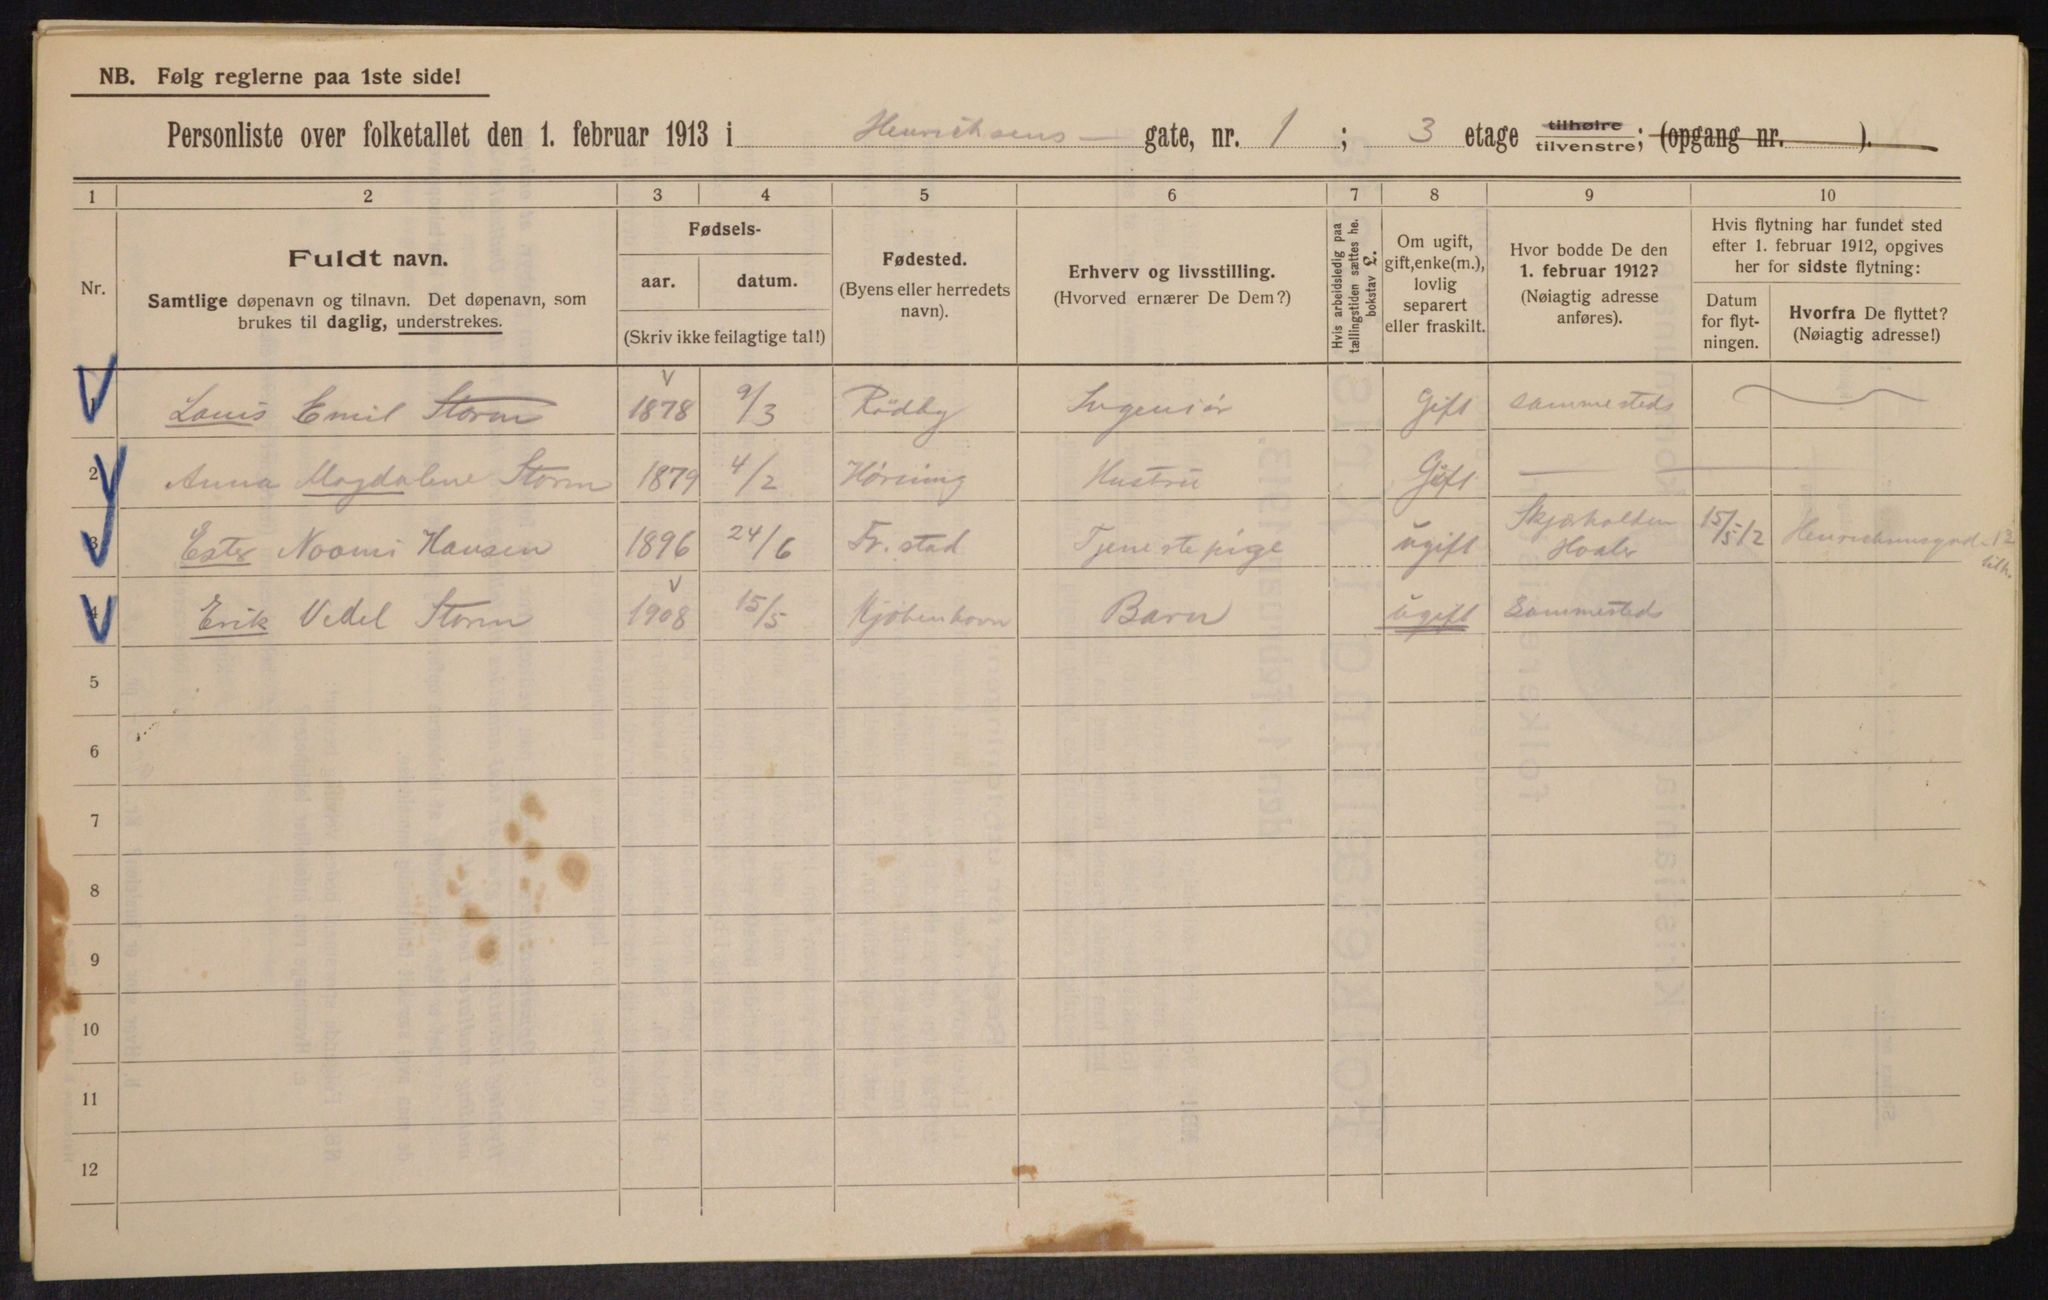 NB. Følg reglerne paa 1ste side!
Personliste over folketallet den 1. februar 1913 i Henrichsens gate, nr. 1 ; 3 etage tilhøire tilvenstre; (opgang nr. ).
1 2 3 4 5 6 7 8 9 10
Nr.
Fuldt navn.
Samtlige døpenavn og tilnavn. Det døpenavn, som
brukes til daglig, understrekes.
Fødsels-
aar. datum.
(Skriv ikke feilagtige tal!)
Fødested.
(Byens eller herredets
navn).
Erhverv og livsstilling.
(Hvorved ernærer De Dem?)
Hvis arbeidsledig paa
tællingstiden sættes he.
bokstav L.
Om ugift,
gift, enke(m.),
lovlig
separert
eller fraskilt.
Hvor bodde De den
1. februar 1912?
(Nøiagtig adresse
anføres).
Hvis flytning har fundet sted
efter 1. februar 1912, opgives
her for sidste flytning:
Datum
for flyt-
ningen.
Hvorfra De flyttet?
(Nøiagtig adresse!)
1 Louis Emil Storm 1878 9/3 Rödby Ingeniör Gift sammesteds
2 Anna Magdalene Storm 1879 4/2 Hörning Hustru Gift
3 Ester Noomi Hansen 1896 24/6 Fr. stad Tjenestepige ugift Skjærholden Hvaler 15/5 12 Henrichsensgad 12 tilh.
4 Erik Vedel Storm 1908 15/5 Kjöbenhavn Barn ugift Sammesteds
5
6
7
8
9
10
11
12